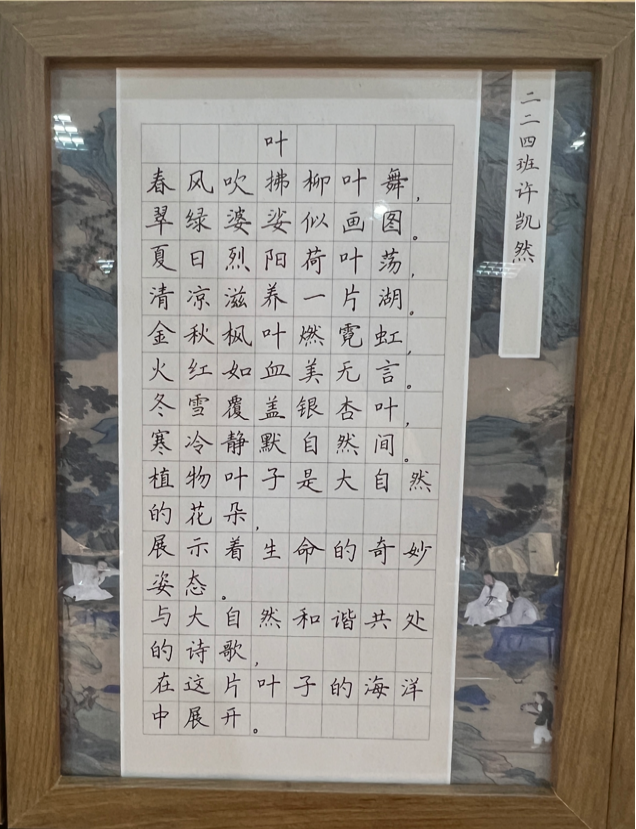 叶
春风吹拂柳叶舞，
翠绿婆娑似画图。
夏日烈阳荷叶荡，
清凉滋养一片湖。
金秋枫叶燃霓虹，
火红如血美无言。
冬雪覆盖银杏叶，
寒冷静默自然间。
植物叶子是大自然
的花朵，
展示着生命的奇妙
姿态。
与大自然和谐共处
的诗歌，
在这片叶子的海洋
中展开。
二二四班许凯然